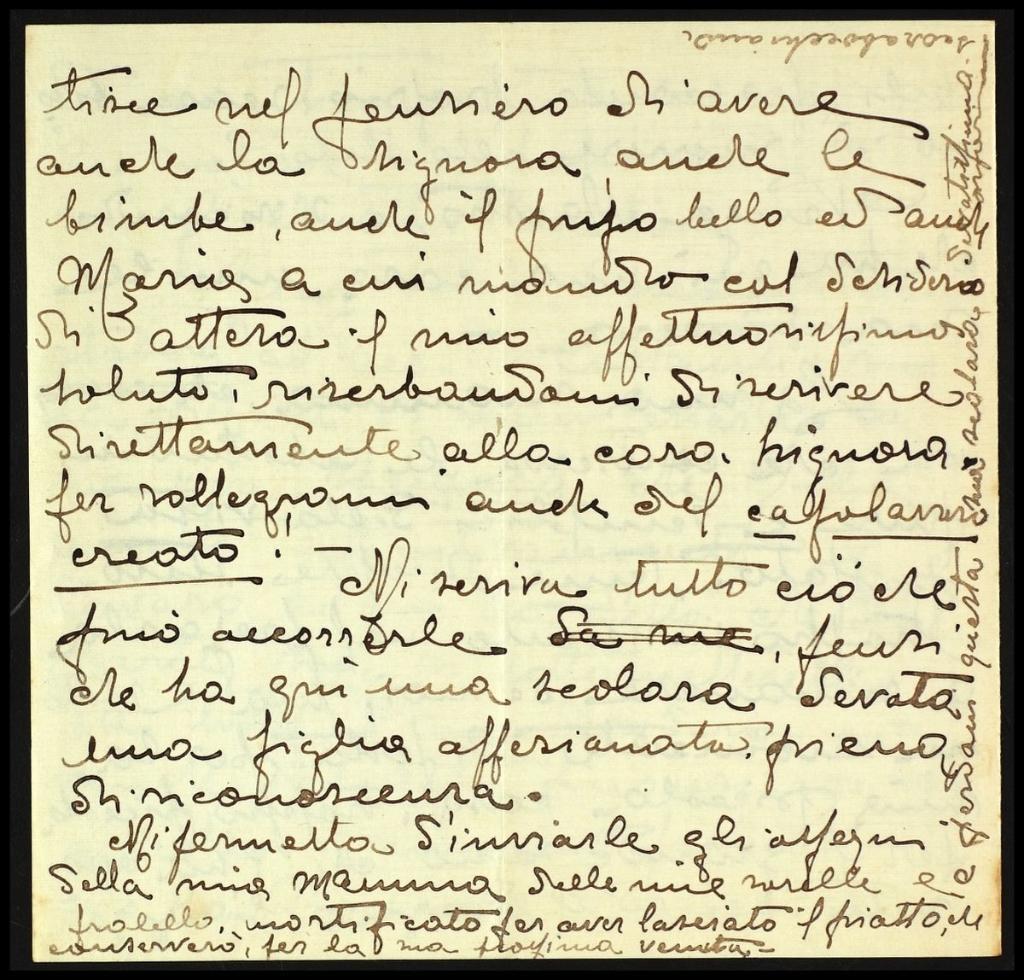 tisce nel pensiero di avere
anche la Signora, anche le
bimbe, anche il pupo bello ed anche
Maria a cui mando col desiderio
di attesa il mio affettuosissimo
saluto, riserbandomi di scrivere
direttamente alla cara Signora
per rallegrarmi anche del capolavoro
creato! —
Mi scriva tutto ciò che
può accorrerle da me, pensi
che ha qui una scolara devota
una figlia affezionata piena
di riconoscenza.
Mi permetta d'inviarle gli ossequi
della mia Mamma delle mie sorelle e
fratello, mortificato per aver lasciato il piatto, che
conserverò, per la sua prossima venuta —
e perdoni questa sua scolara divotissima